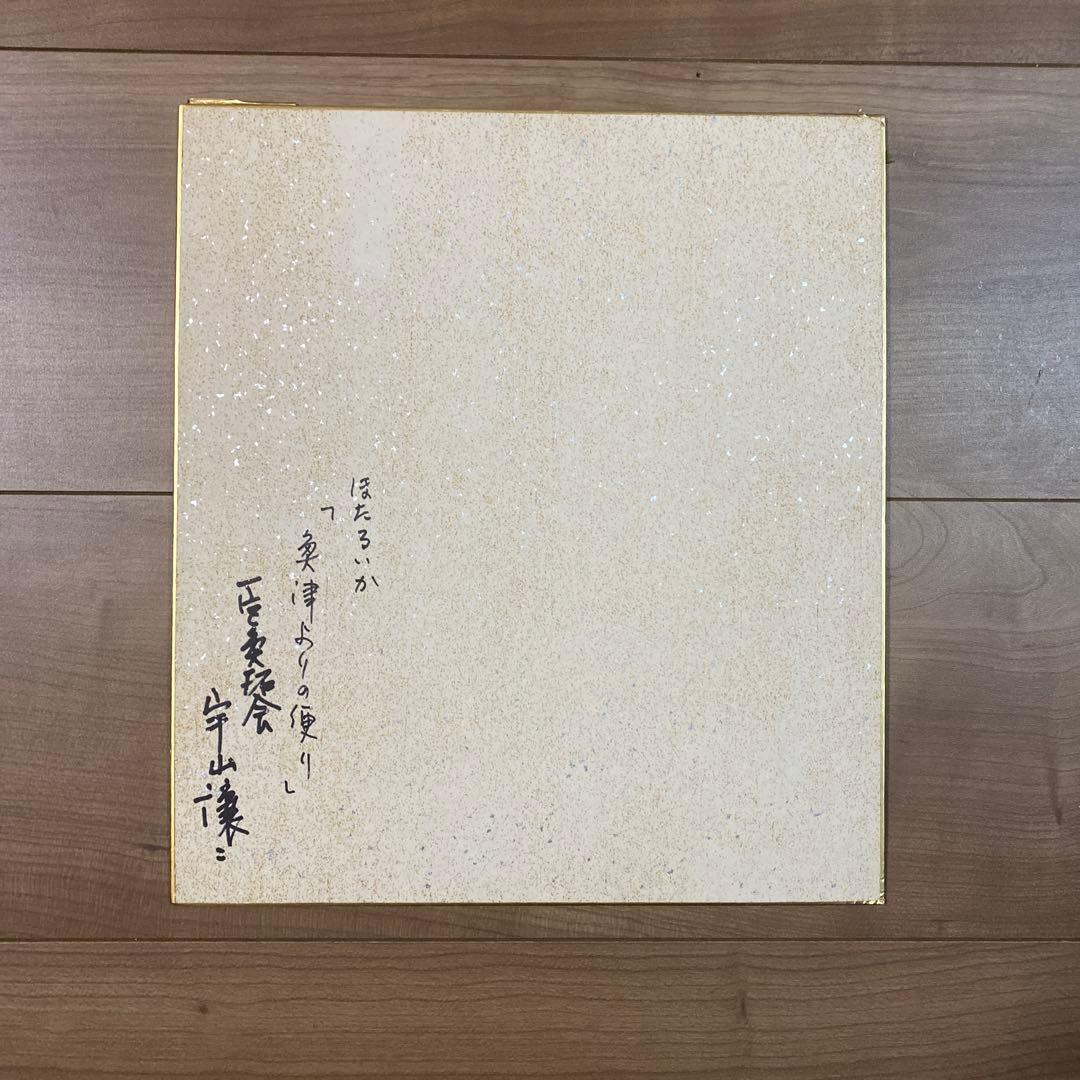 ほたるいか
「魚津よりの便り」
魚拓会
宇山譲二